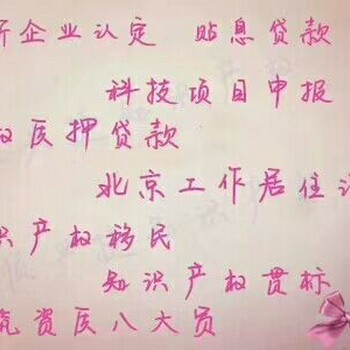 企业认定 贴息贷款
科技项目申报
权医押贷款
北京工作居住
识产权移民
知识产权贯标
筑资医八大员